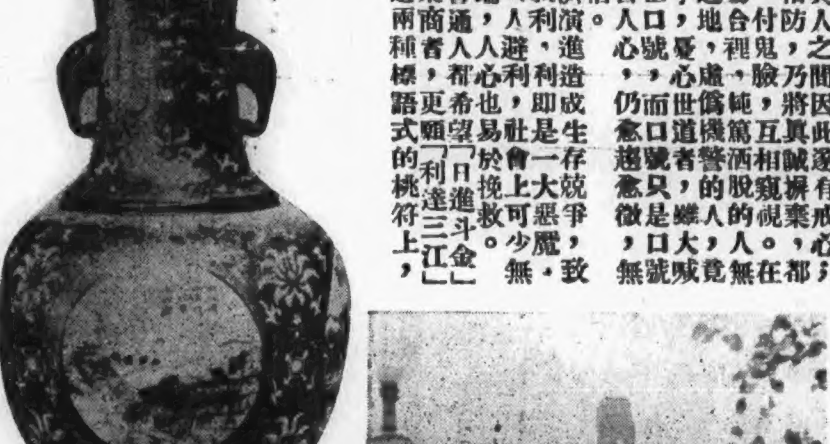 人之間因此遂有戒心，
防，乃將眞誠摒棄，都
付鬼臉，互相窺視。在
合裡，純篤洒脫的人無
地，虛僞機警的人，竟
，憂心世道者，雖大喊
口號，而口號只是口號
人心，仍愈趨愈微，無
。
演進造成生存競爭，致
利，利卽是一大惡魔．
人避利，社會上可少無
，人心也易於挽救。
通人都希望「日進斗金」
商者，更願「利達三江」
兩種標語式的桃符上，